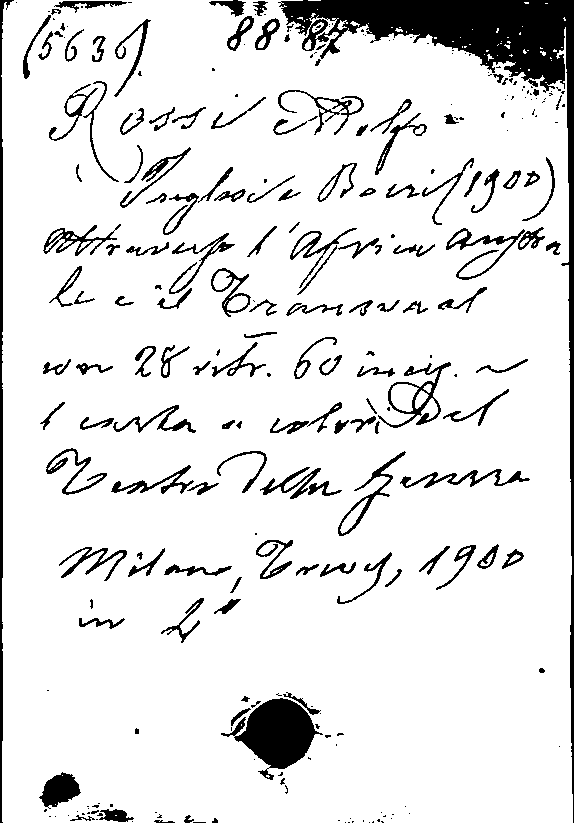 (5636) 88.87
Rossi Adolfo
Inglesi e Boeri (1900)
Attraverso l'Africa Austra-
le e il Transvaal
con 28 ritr. 60 incis. e
1 carta a colori del
Teatro della Guerra
Milano, Treves, 1900
in 4°